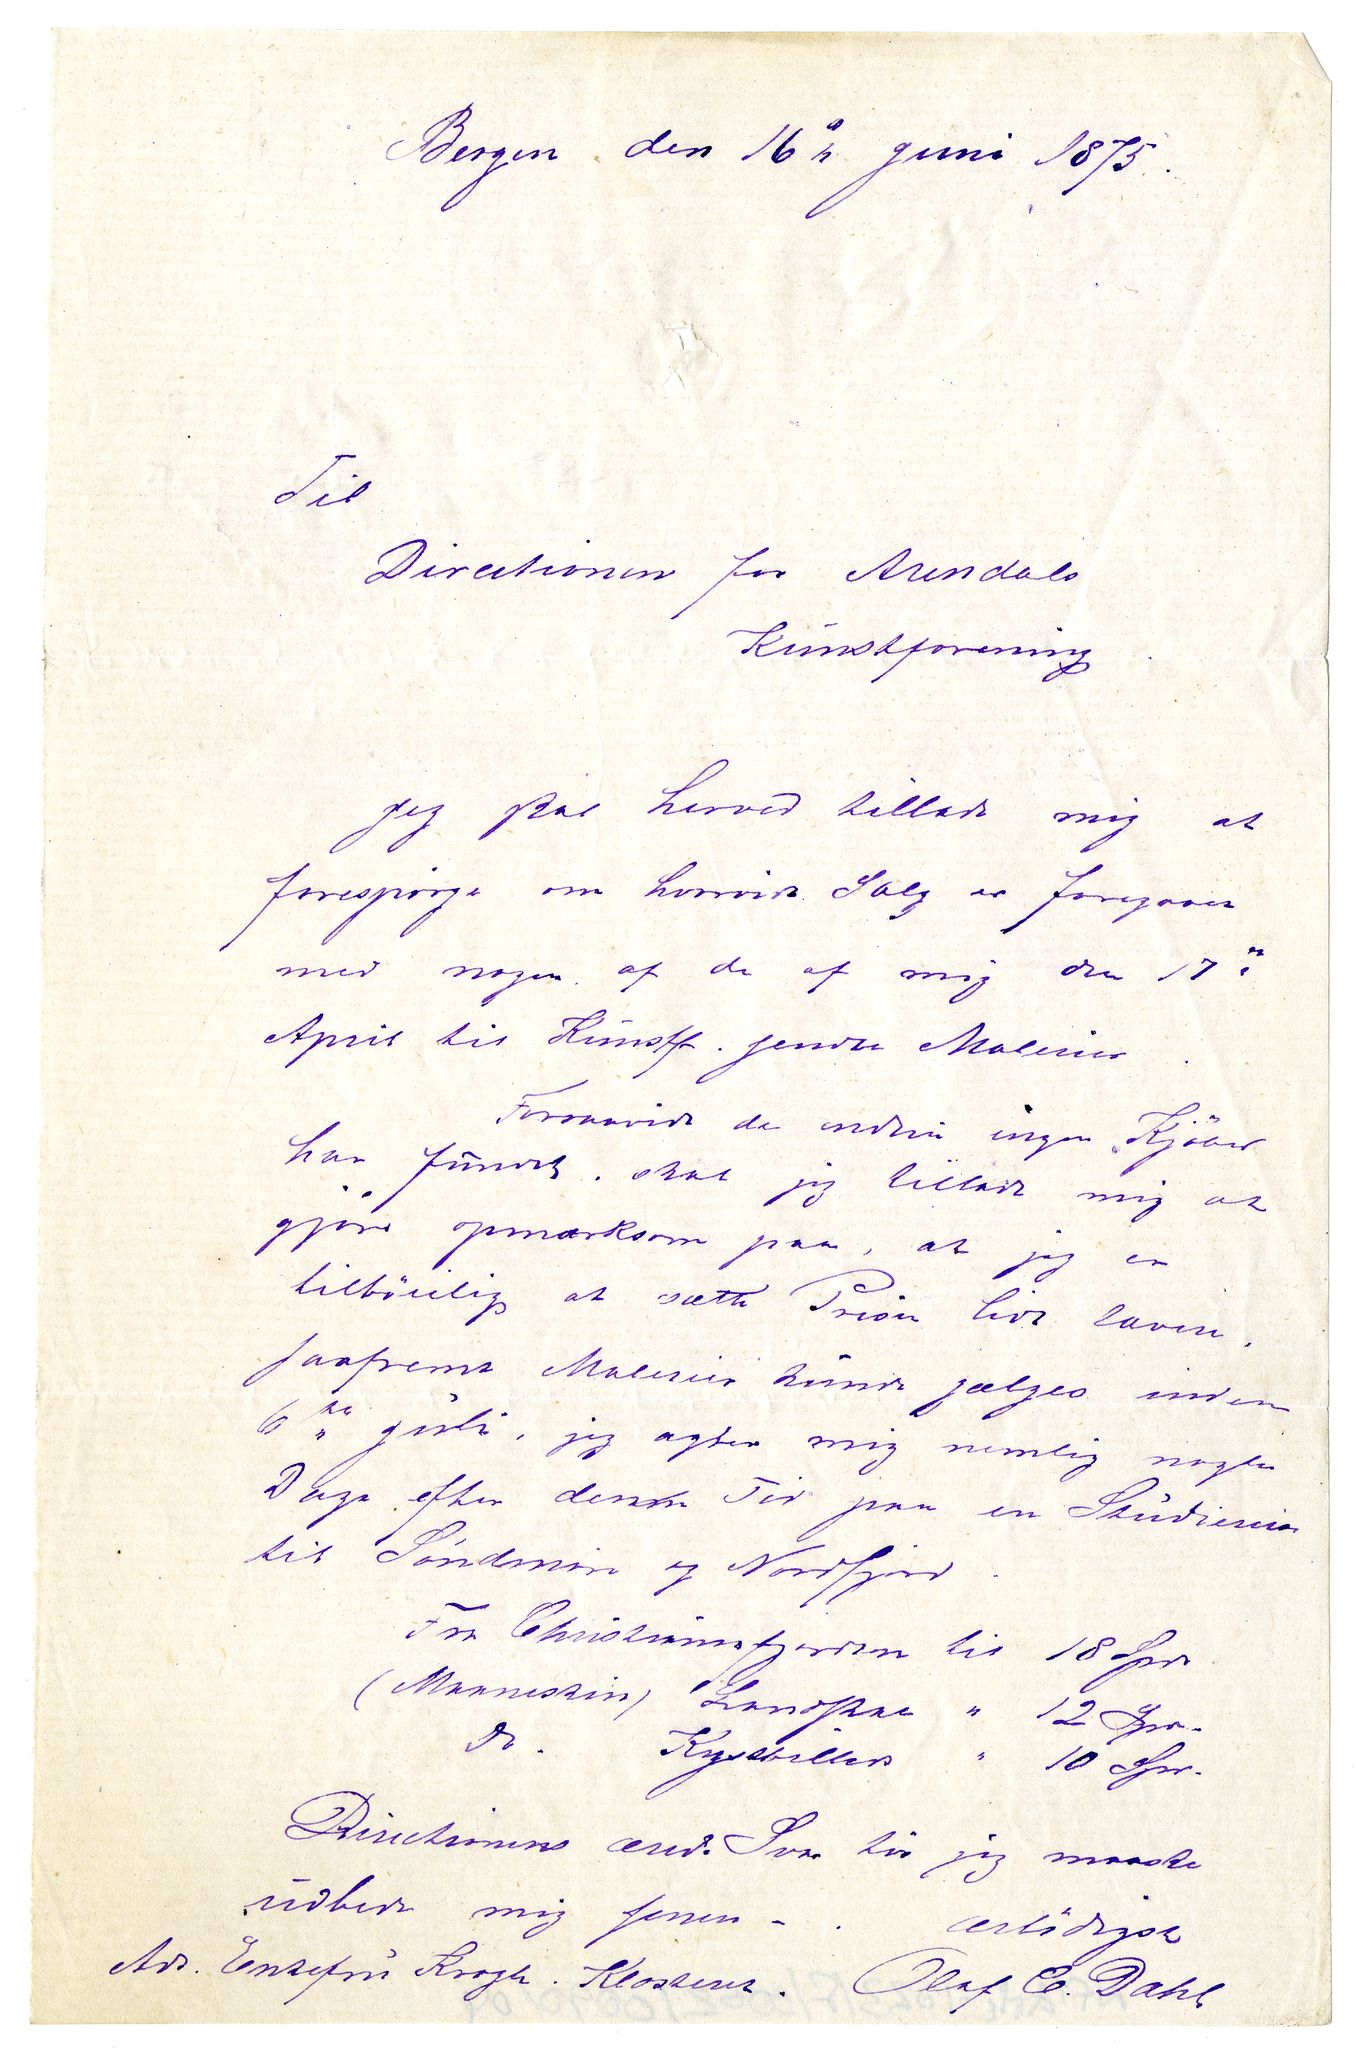 Bergen den 16de Juni 1875.
Til
Directionen for Arendals
Kunstforening
Jeg skal herved tillade mig at
forespörge om hvorvidt Salg er foregaaet
med nogen af de af mig den 17de
April til Kunstf. sendte Malerier.
Forsaavidt de endnu ingen Kjöber
har fundet, skal jeg tillade mig at
gjöre opmærksom paa, at jeg er
tilböielig at sætte Prisen lidt lavere,
saafremt Malerier kunde sælges inden
6te Juli, jeg agter mig nemlig nogle
Dage efter denne Tid paa en Studiereise
til Söndmör og Nordfjord.
Fra Christianiafjorden til 18 Spd.
(Maaneskin) Landskab " 12 Spd.
do. Kystbillede " 10 Spd.
Directionens ærede Svar tör jeg maaske
udbede mig senere. ærbödigst
Adr. Enkefru Krogh. Klosteret. Olaf E. Dahl